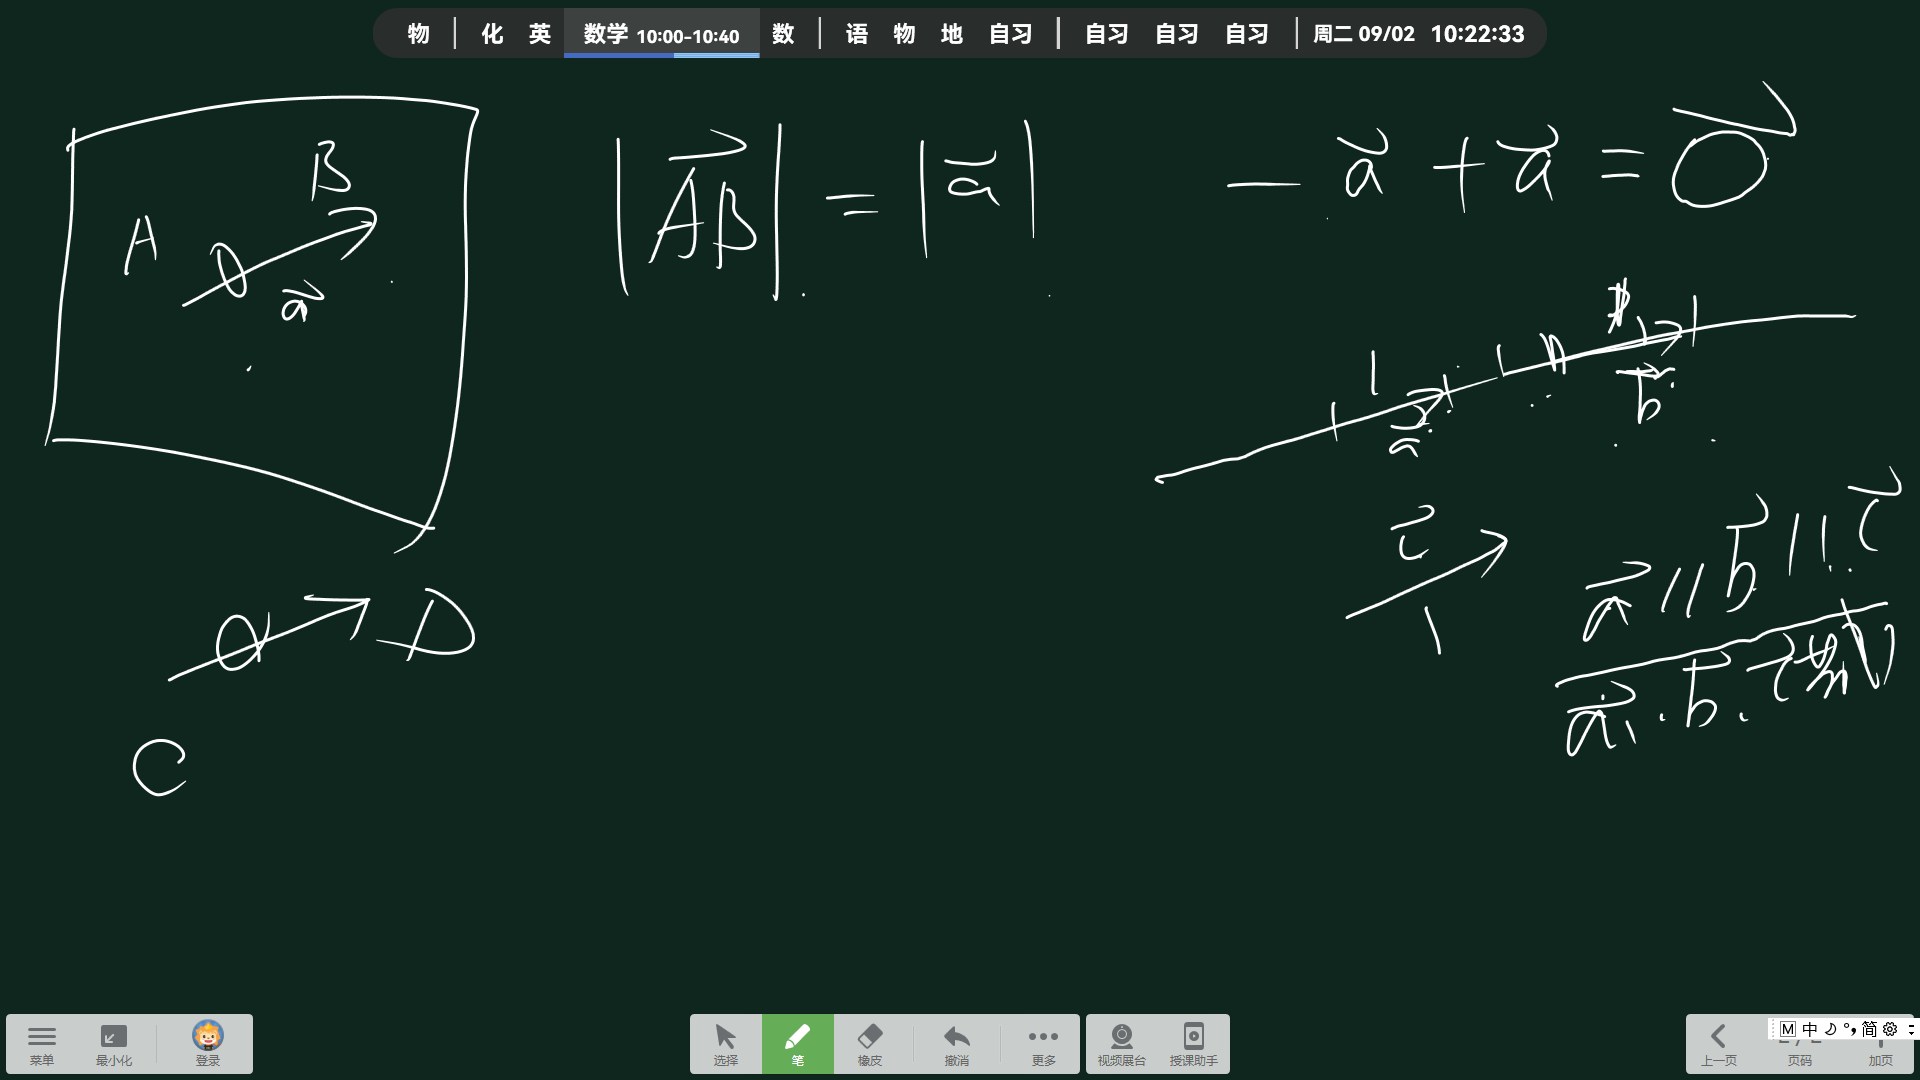 物 | 化 英 数学 10:00-10:40 数 | 语 物 地 自习 | 自习 自习 自习 | 周二 09/02 10:22:33
A B
a⃗
|A⃗B⃗| = |a⃗|
- a⃗ + a⃗ = 0⃗
a⃗ b⃗
c⃗
a⃗ // b⃗ // c⃗
a⃗ . b⃗ . c⃗
D
C
菜单 最小化 登录 选择 笔 橡皮 撤消 更多 视频展台 授课助手 上一页 页码 加页
M 中 简